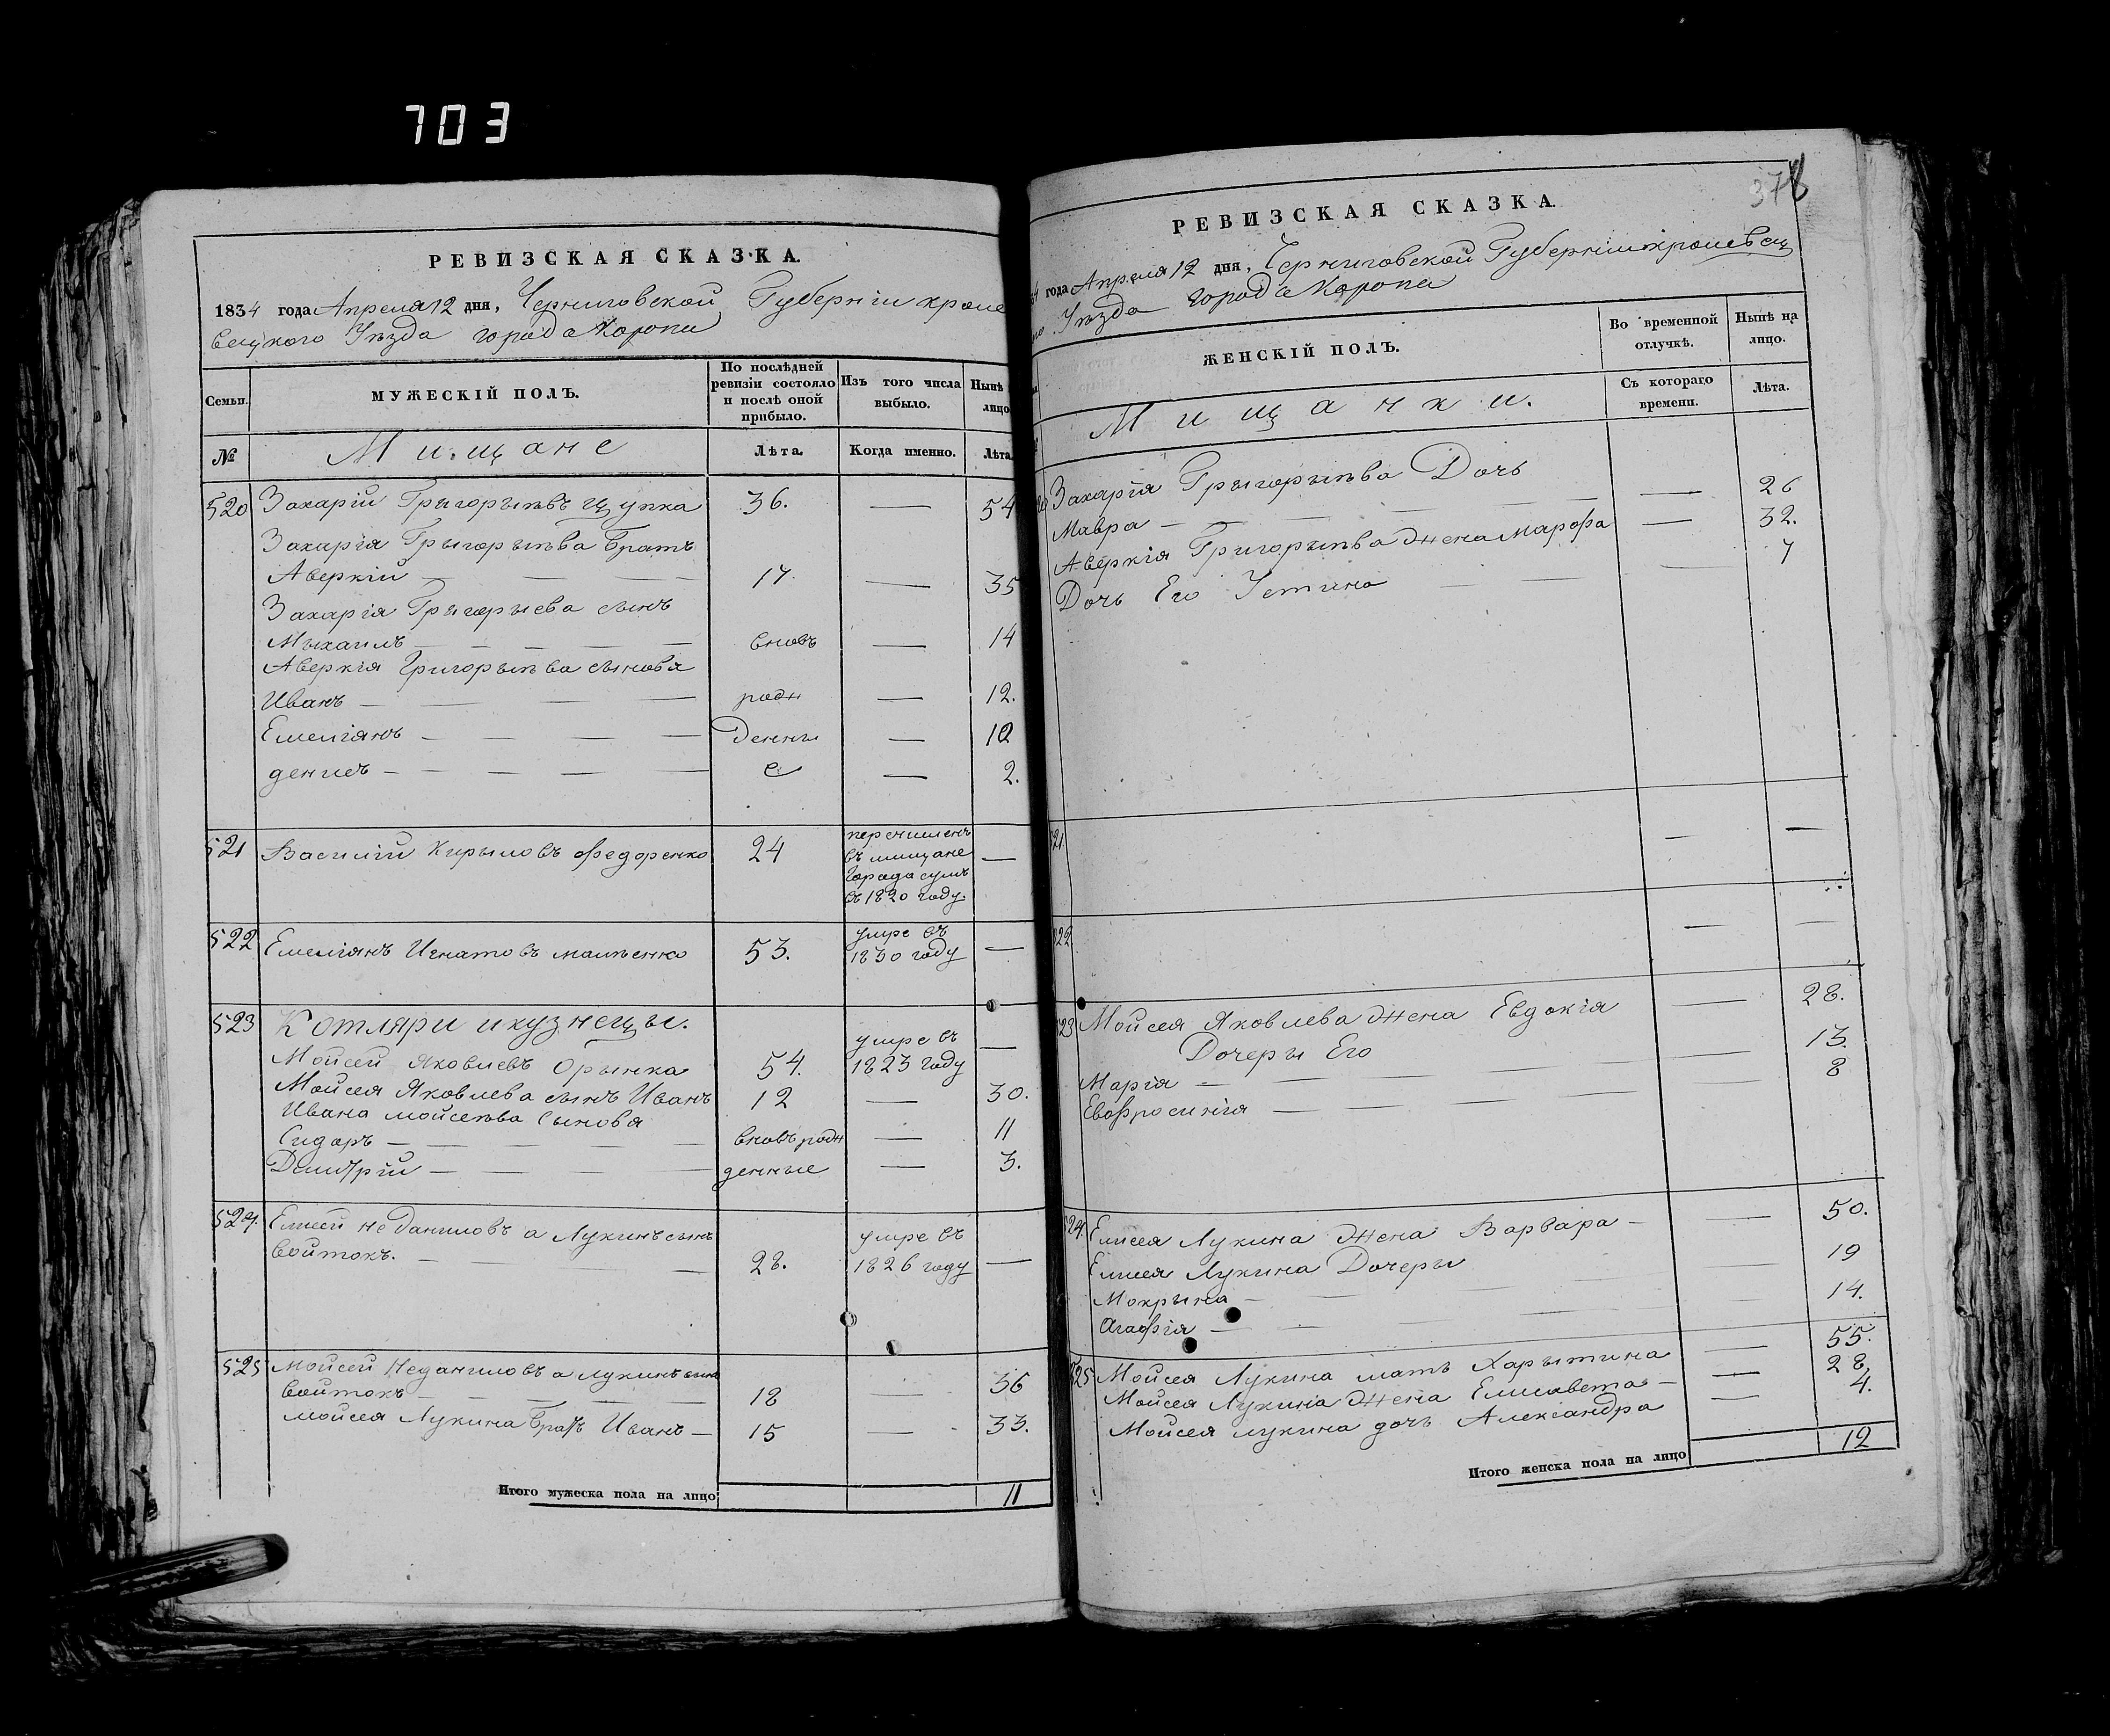 703
РЕВИЗСКАЯ СКАЗКА.
1834 года Апреля 12 дня, Черниговской Губерніи кроле
вецкого Уѣзда города Коропа
Семьи.
МУЖЕСКІЙ ПОЛЪ.
По послѣдней ревизіи состояло и послѣ оной прибыло.
Изъ того числа выбыло.
Нынѣ лицо
№
Мищане
Лѣта.
Когда именно.
Лѣта.
520 Захарій Грыгорьевъ Щупка 36. — 54
Захарія Грыгорьева братъ
Аверкій — 17 — 35
Захарія Грыгорьева сынъ
Мыхаилъ — вновь — 14
Аверкія Григорьева сыновя
Иванъ — рож — 12.
Емеліянъ — Денны — 10
денисъ — е — 2.
521 Василій Кырыловъ Федоренко 24 перечисленъ —
въ мищане
города сумъ
въ 1820 году.
522 Емеліянъ Игнатовъ 53. умре въ —
1830 году
523 Котляри и кузнецы.
Мойсей Яковлевъ Орынка 54. умре въ —
1823 году
Мойсея Яковлева сынъ Иванъ 12 — 30.
Ивана мойсеева сыновя
Сидоръ — вновь рож — 11
Дмитрій — денные — 3.
524. Елисей не Даниловъ а Лукинъ сынъ
войтокъ. — 28. умре въ —
1826 году
525 Мойсей Неданиловъ а лукинъ сынъ
войтокъ — 18 — 36
Мойсея Лукина братъ Иванъ — 15 — 33.
Итого мужеска пола на лицо 11
378
РЕВИЗСКАЯ СКАЗКА
года Апреля 12 дня, Черниговской Губерніи кролевец
Уѣзда города Коропа
ЖЕНСКІЙ ПОЛЪ.
Во временной отлучкѣ.
Нынѣ на лицо.
Мищанки.
Съ котораго времени.
Лѣта.
Захарія Грыгорьева Дочь
Мавра — — 26
Аверкія Григорьева жена Марфа — 32.
Дочь Его Устина — 7
521. — —
522 — —
523 Мойсея Яковлева жена Евдокія — 28.
Дочеры Его
Марія — — 13.
Евфросинія — — 8
524. Елисея Лукина жена Варвара — — 50.
Елисея Лукина Дочеры
Мокрына — — 19
Агафія — — 14.
525 Мойсея Лукина мать Харытина — 55.
Мойсея Лукина жена Елисавета — — 28,
Мойсея лукина дочь Александра — 4.
Итого женска пола на лицо 12